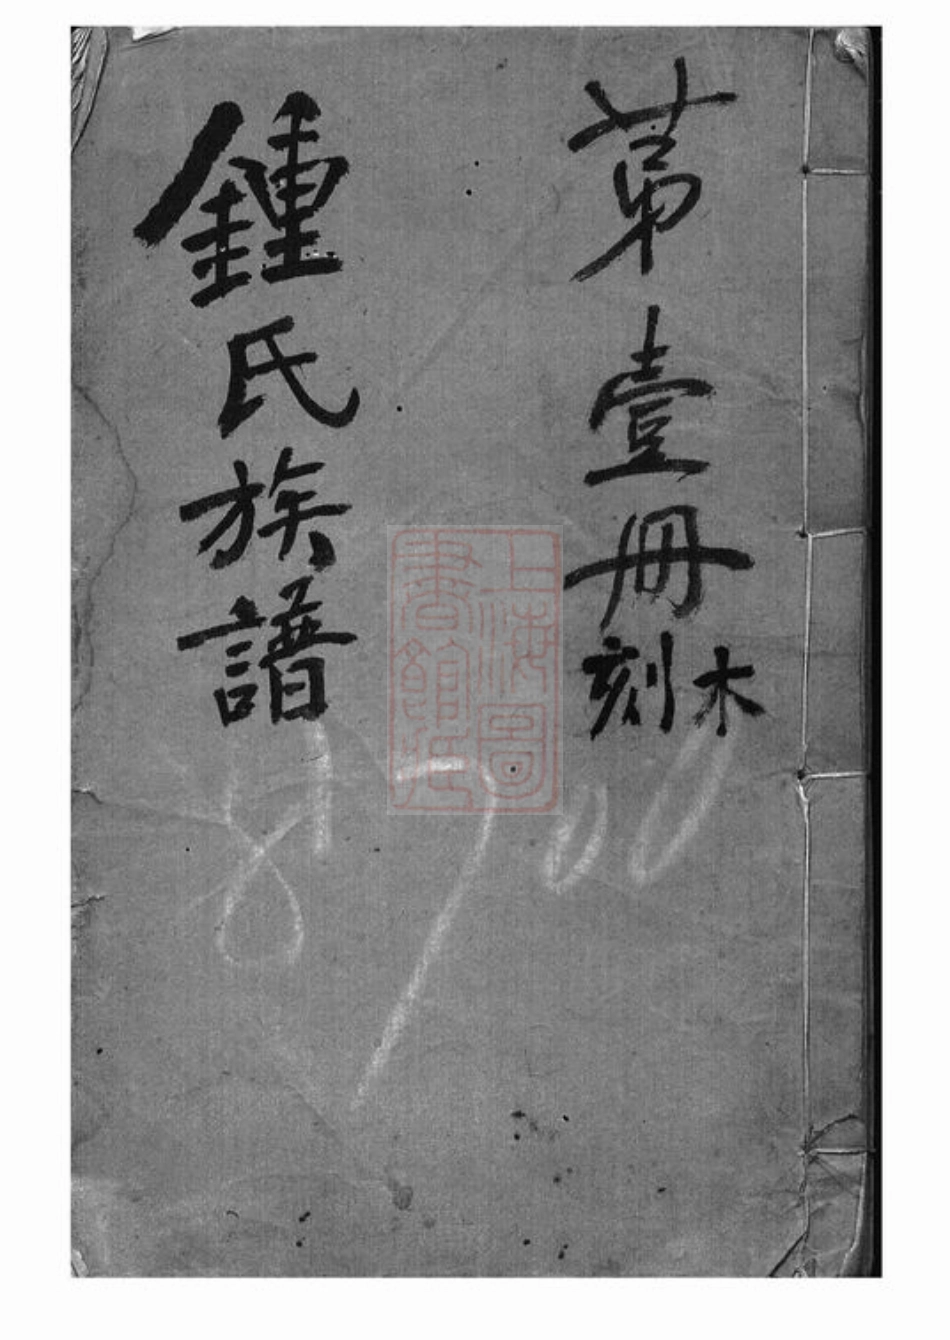 第壹冊
木刻
鍾氏族譜
上海圖書館藏
8700